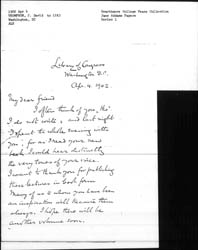 1902 Apr 4
Swarthmore College Peace Collection
Jane Addams Papers
Series 1
Washington, DC
ALS
Library of Congress
Washington D.C.
Apr. 4. 1902.
My dear friend
I often think of you, tho'
I do not write, and last night
I spent the whole evening with
you; for as I read your new
book I could hear distinctly
the very tones of your voice.
I want to thank you for publishing
these lectures in book form
Many of us to whom you have been
an inspiration will treasure them
always. I hope there will be
another volume soon.